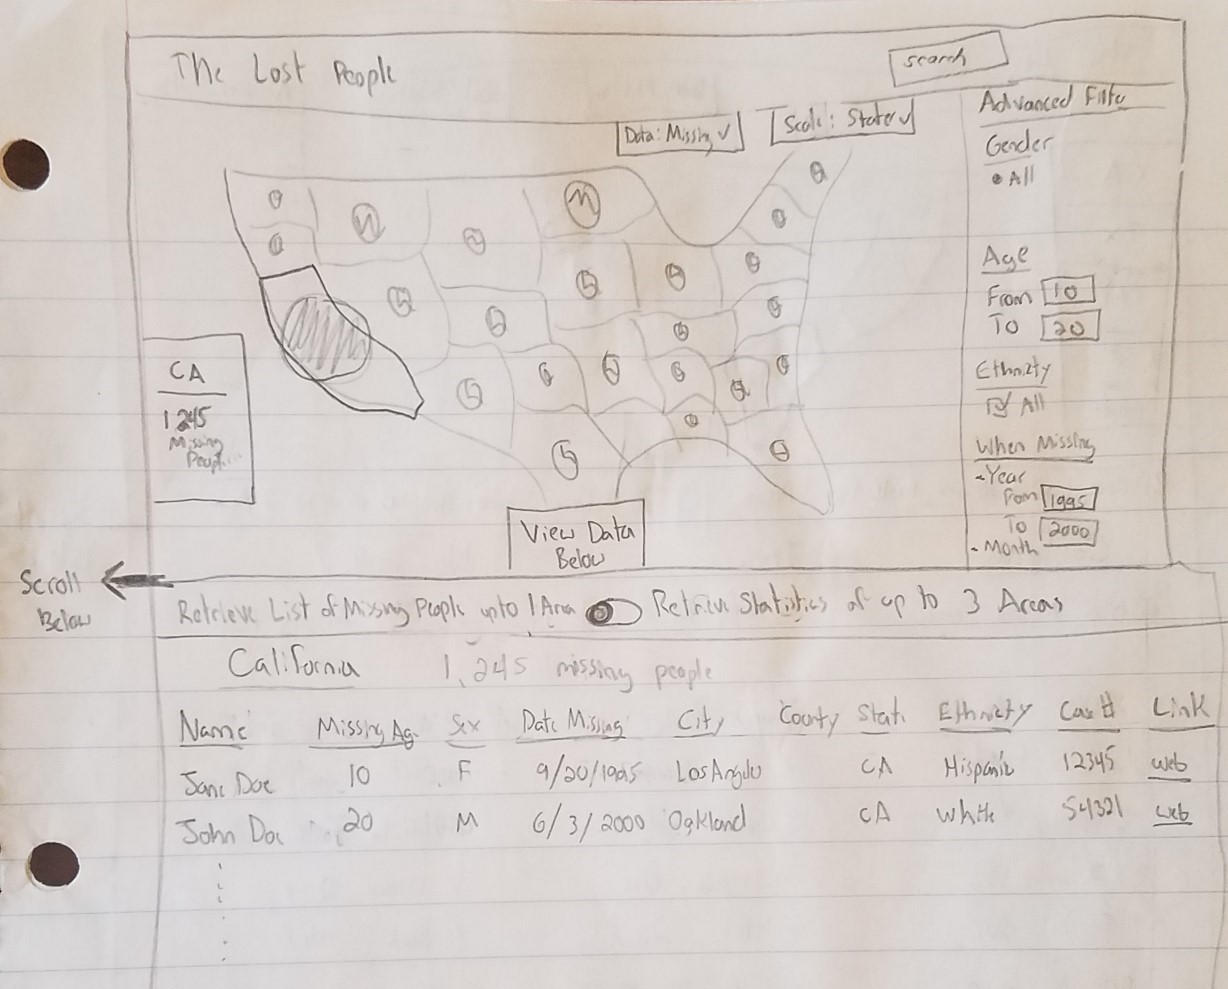 The Lost People
search
Data: Missing ✓
Scale: State ✓
Advanced Filter
Gender
• All
Age
From 10
To 20
Ethnicity
☑ All
When Missing
- Year
From 1995
To 2000
- Month
CA
1,245
Missing
People
View Data
Below
Scroll
Below
Retrieve List of Missing People upto 1 Area Retrieve Statistics of up to 3 Areas
California 1,245 missing people
Name Missing Age Sex Date Missing City County State Ethnicity Case # Link
Jane Doe 10 F 9/20/1995 Los Angeles CA Hispanic 12345 web
John Doe 20 M 6/3/2000 Oakland CA White 54321 web